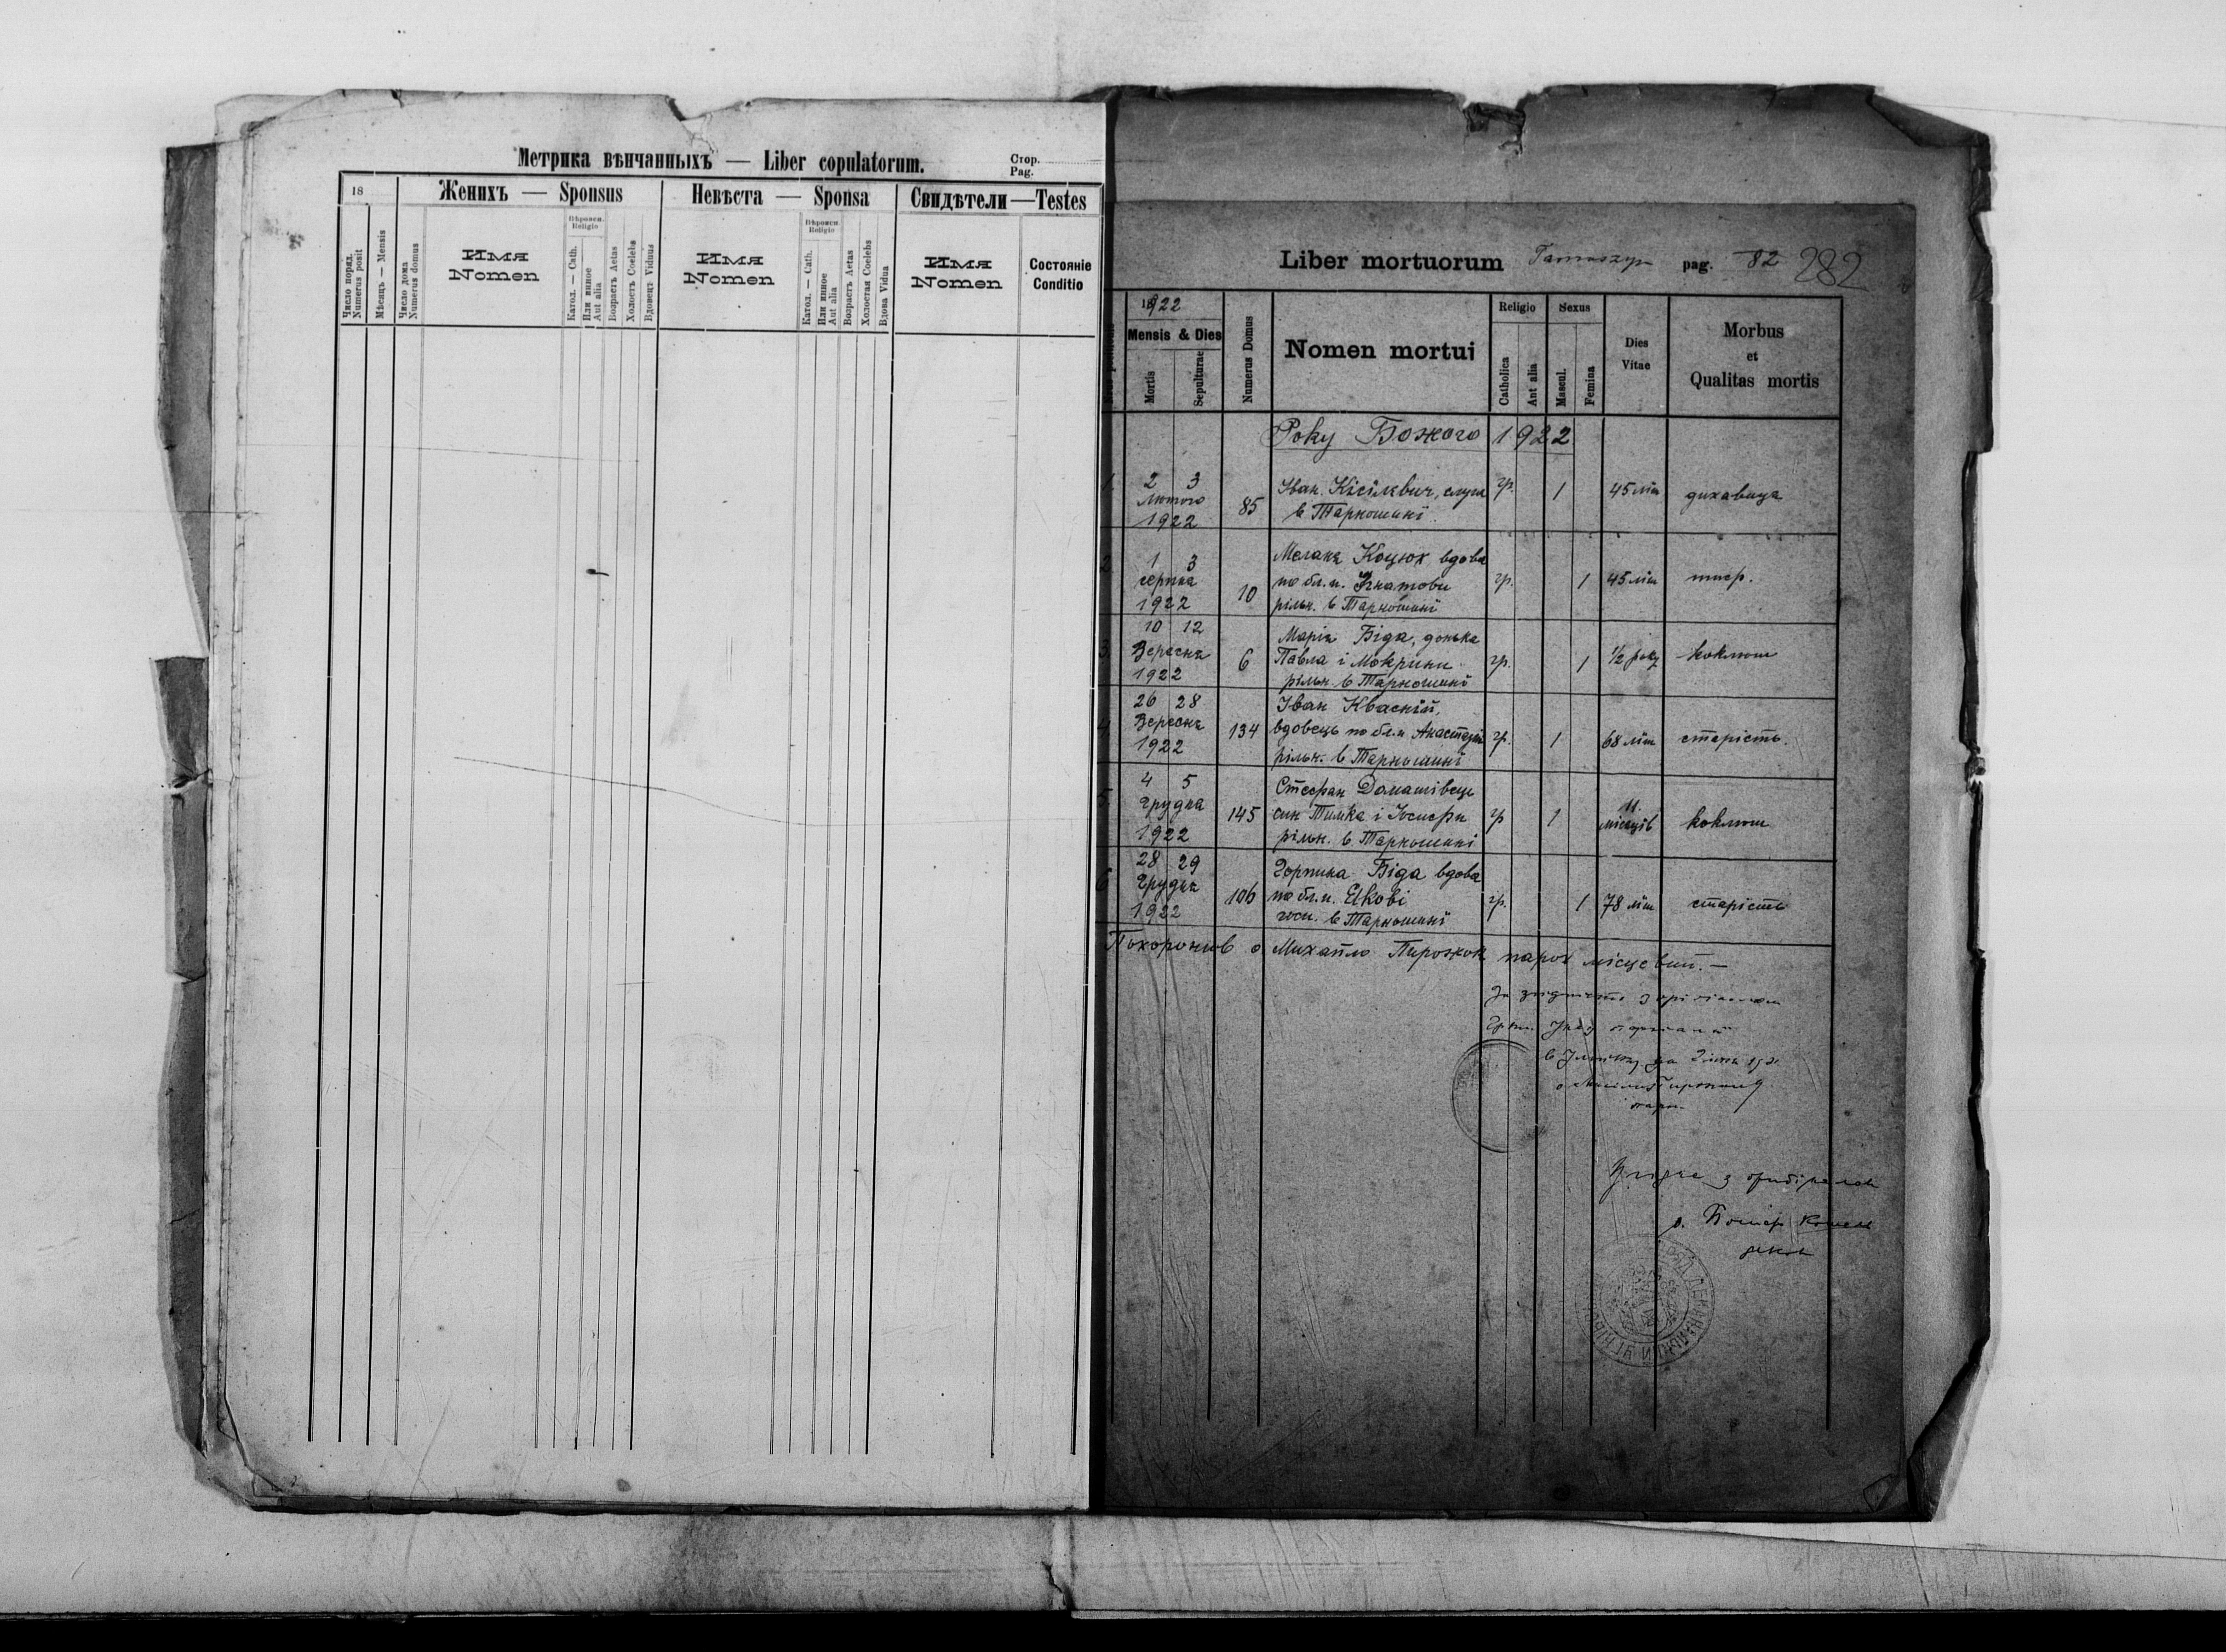 Метрика вѣнчанныхъ — Liber copulatorum.
Стор.
Pag.
18
Женихъ — Sponsus
Невѣста — Sponsa
Свидѣтели — Testes
Число поряд.
Numerus posit
Мѣсяцъ — Mensis
Число дома
Numerus domus
Имя
Nomen
Вѣроисп.
Religio
Катол. — Cath.
Или инное
Aut alia
Возрастъ Aetas
Холостъ Coelebs
Вдовецъ Viduus
Имя
Nomen
Вѣроисп.
Religio
Катол. — Cath.
Или инное
Aut alia
Возрастъ Aetas
Холостая Coelebs
Вдова Vidua
Имя
Nomen
Состояніе
Conditio
Liber mortuorum pag. 82 282
1922
Mensis & Dies
Mortis
Sepulturae
Numerus Domus
Nomen mortui
Religio
Catholica
Aut alia
Sexus
Mascul.
Femina
Dies
Vitae
Morbus
et
Qualitas mortis
Року Божого 1922
1. 2 3 Лютого 1922
85
Іван Кісілевич, слуга
в Тарношині
гр. 1 45 літ духавиця
2. 1 3 серпня 1922
10
Меланя Коцюх вдова
по бл. п. Ігнатови
рільн. в Тарношині
гр. 1 45 літ
3. 10 12 Вересня 1922
6
Марія Біда, донька
Павла і Мокрини
рільн. в Тарношині
гр. 1 1/2 року коклюш
4. 26 28 Вересня 1922
134
Іван Квасній,
вдовець по бл. п. Анастазії
рільн. в Тарношині
гр. 1 68 літ старість.
5. 4 5 Грудня 1922
145
Стефан Домашівець
син Тимка і Йосифи
рільн. в Тарношині
гр 1 11 місяців коклюш
6 28 29 Грудня 1922
106
Горпина Біда вдова
по бл. п. Елькові
госп. в Тарношині
гр. 1 78 літ старість
Похоронив о Михайло Пирожок парох місцевий. —
з оріґіналом
парох
з ориґіналом
декан